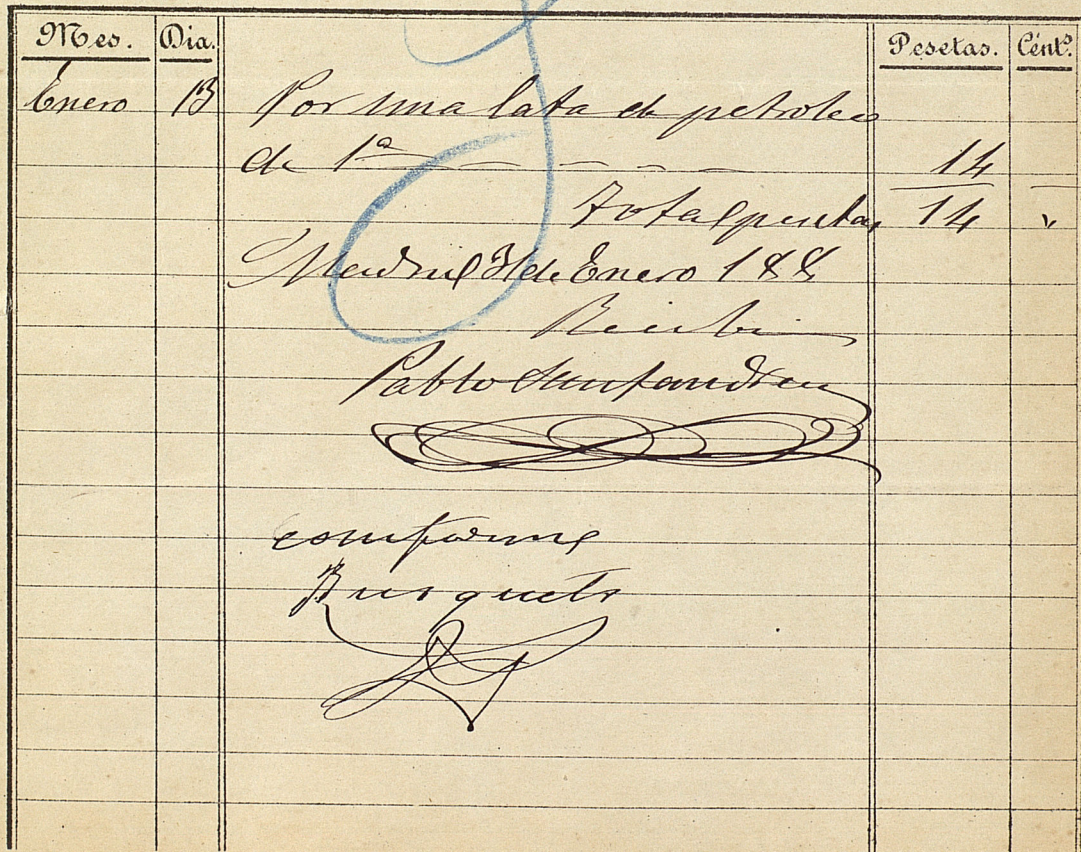 Mes. Dia. Pesetas. Cént.ˢ
Enero 13 Por una lata de petroleo
de 1ª 14
Total pesetas 14 "
Madrid 31 de Enero 188
Recibi
Pablo
conforme
Busquets